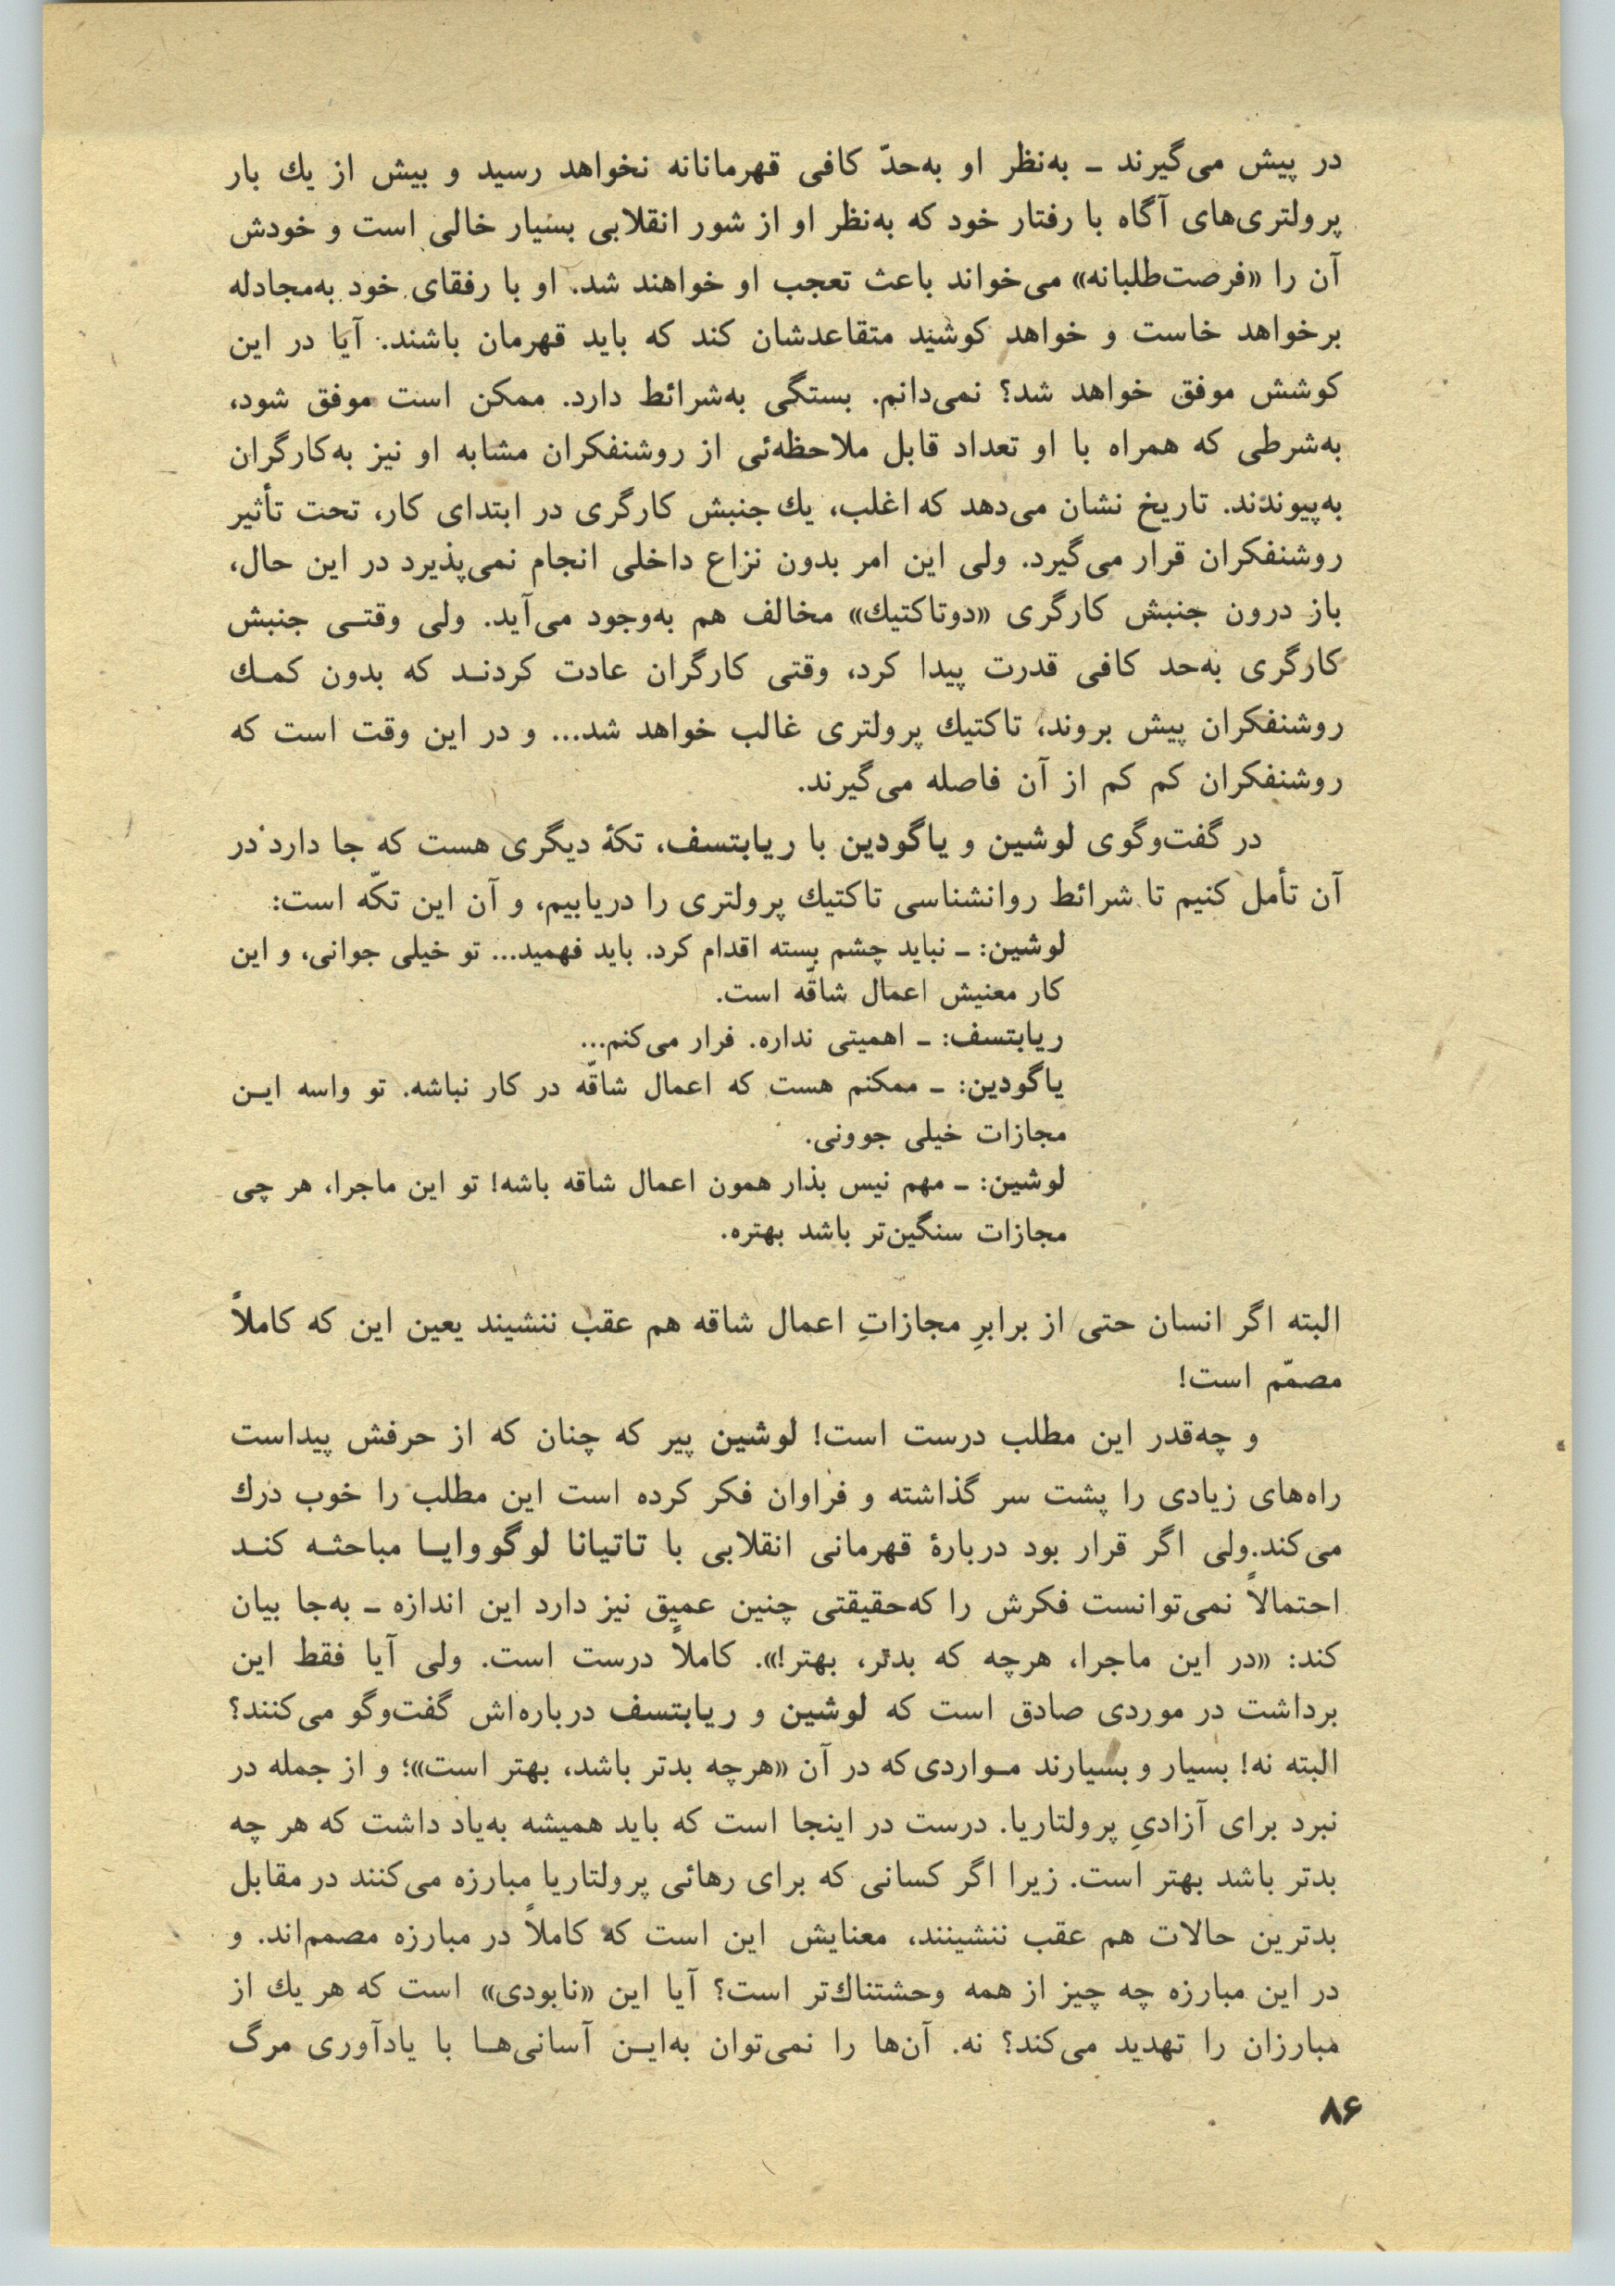 در پیش می‌گیرند ـ به‌نظر او به‌حدّ کافی قهرمانانه نخواهد رسید و بیش از یك بار
پرولتری‌های آگاه با رفتار خود که به‌نظر او از شور انقلابی بسیار خالی است و خودش
آن را «فرصت‌طلبانه» می‌خواند باعث تعجب او خواهند شد. او با رفقای خود به‌مجادله
برخواهد خاست و خواهد کوشید متقاعدشان کند که باید قهرمان باشند. آیا در این
کوشش موفق خواهد شد؟ نمی‌دانم. بستگی به‌شرائط دارد. ممکن است موفق شود،
به‌شرطی که همراه با او تعداد قابل ملاحظه‌ئی از روشنفکران مشابه او نیز به‌کارگران
به‌پیوندند. تاریخ نشان می‌دهد که اغلب، یك جنبش کارگری در ابتدای کار، تحت تأثیر
روشنفکران قرار می‌گیرد. ولی این امر بدون نزاع داخلی انجام نمی‌پذیرد در این حال،
باز درون جنبش کارگری «دوتاکتیك» مخالف هم به‌وجود می‌آید. ولی وقتـی جنبش
کارگری به‌حد کافی قدرت پیدا کرد، وقتی کارگران عادت کردنـد که بدون کمـك
روشنفکران پیش بروند، تاکتیك پرولتری غالب خواهد شد... و در این وقت است که
روشنفکران کم کم از آن فاصله می‌گیرند.
در گفت‌وگوی لوشین و یاگودین با ریابتسف، تکهٔ دیگری هست که جا دارد در
آن تأمل کنیم تا شرائط روانشناسی تاکتیك پرولتری را دریابیم، و آن این تکّه است:
لوشین: ـ نباید چشم بسته اقدام کرد. باید فهمید... تو خیلی جوانی، و این
کار معنیش اعمال شاقّه است.
ریابتسف: ـ اهمیتی نداره. فرار می‌کنم...
یاگودین: ـ ممکنم هست که اعمال شاقّه در کار نباشه. تو واسه ایـن
مجازات خیلی جوونی.
لوشین: ـ مهم نیس بذار همون اعمال شاقه باشه! تو این ماجرا، هر چی
مجازات سنگین‌تر باشد بهتره.
البته اگر انسان حتی از برابرِ مجازاتِ اعمال شاقه هم عقب ننشیند یعین این که کاملاً
مصمّم است!
و چه‌قدر این مطلب درست است! لوشین پیر که چنان که از حرفش پیداست
راه‌های زیادی را پشت سر گذاشته و فراوان فکر کرده است این مطلب را خوب درك
می‌کند.ولی اگر قرار بود دربارهٔ قهرمانی انقلابی با تاتیانا لوگووایـا مباحثـه کنـد
احتمالاً نمی‌توانست فکرش را که‌حقیقتی چنین عمیق نیز دارد این اندازه ـ به‌جا بیان
کند: «در این ماجرا، هرچه که بدتر، بهتر!». کاملاً درست است. ولی آیا فقط این
برداشت در موردی صادق است که لوشین و ریابتسف درباره‌اش گفت‌وگو می‌کنند؟
البته نه! بسیار و بسیارند مـواردی‌که در آن «هرچه بدتر باشد، بهتر است»؛ و از جمله در
نبرد برای آزادیِ پرولتاریا. درست در اینجا است که باید همیشه به‌یاد داشت که هر چه
بدتر باشد بهتر است. زیرا اگر کسانی که برای رهائی پرولتاریا مبارزه می‌کنند در مقابل
بدترین حالات هم عقب ننشینند، معنایش این است که کاملاً در مبارزه مصمم‌اند. و
در این مبارزه چه چیز از همه وحشتناك‌تر است؟ آیا این «نابودی» است که هر یك از
مبارزان را تهدید می‌کند؟ نه. آن‌ها را نمی‌توان به‌ایـن آسانی‌هـا با یادآوری مرگ
۸۶